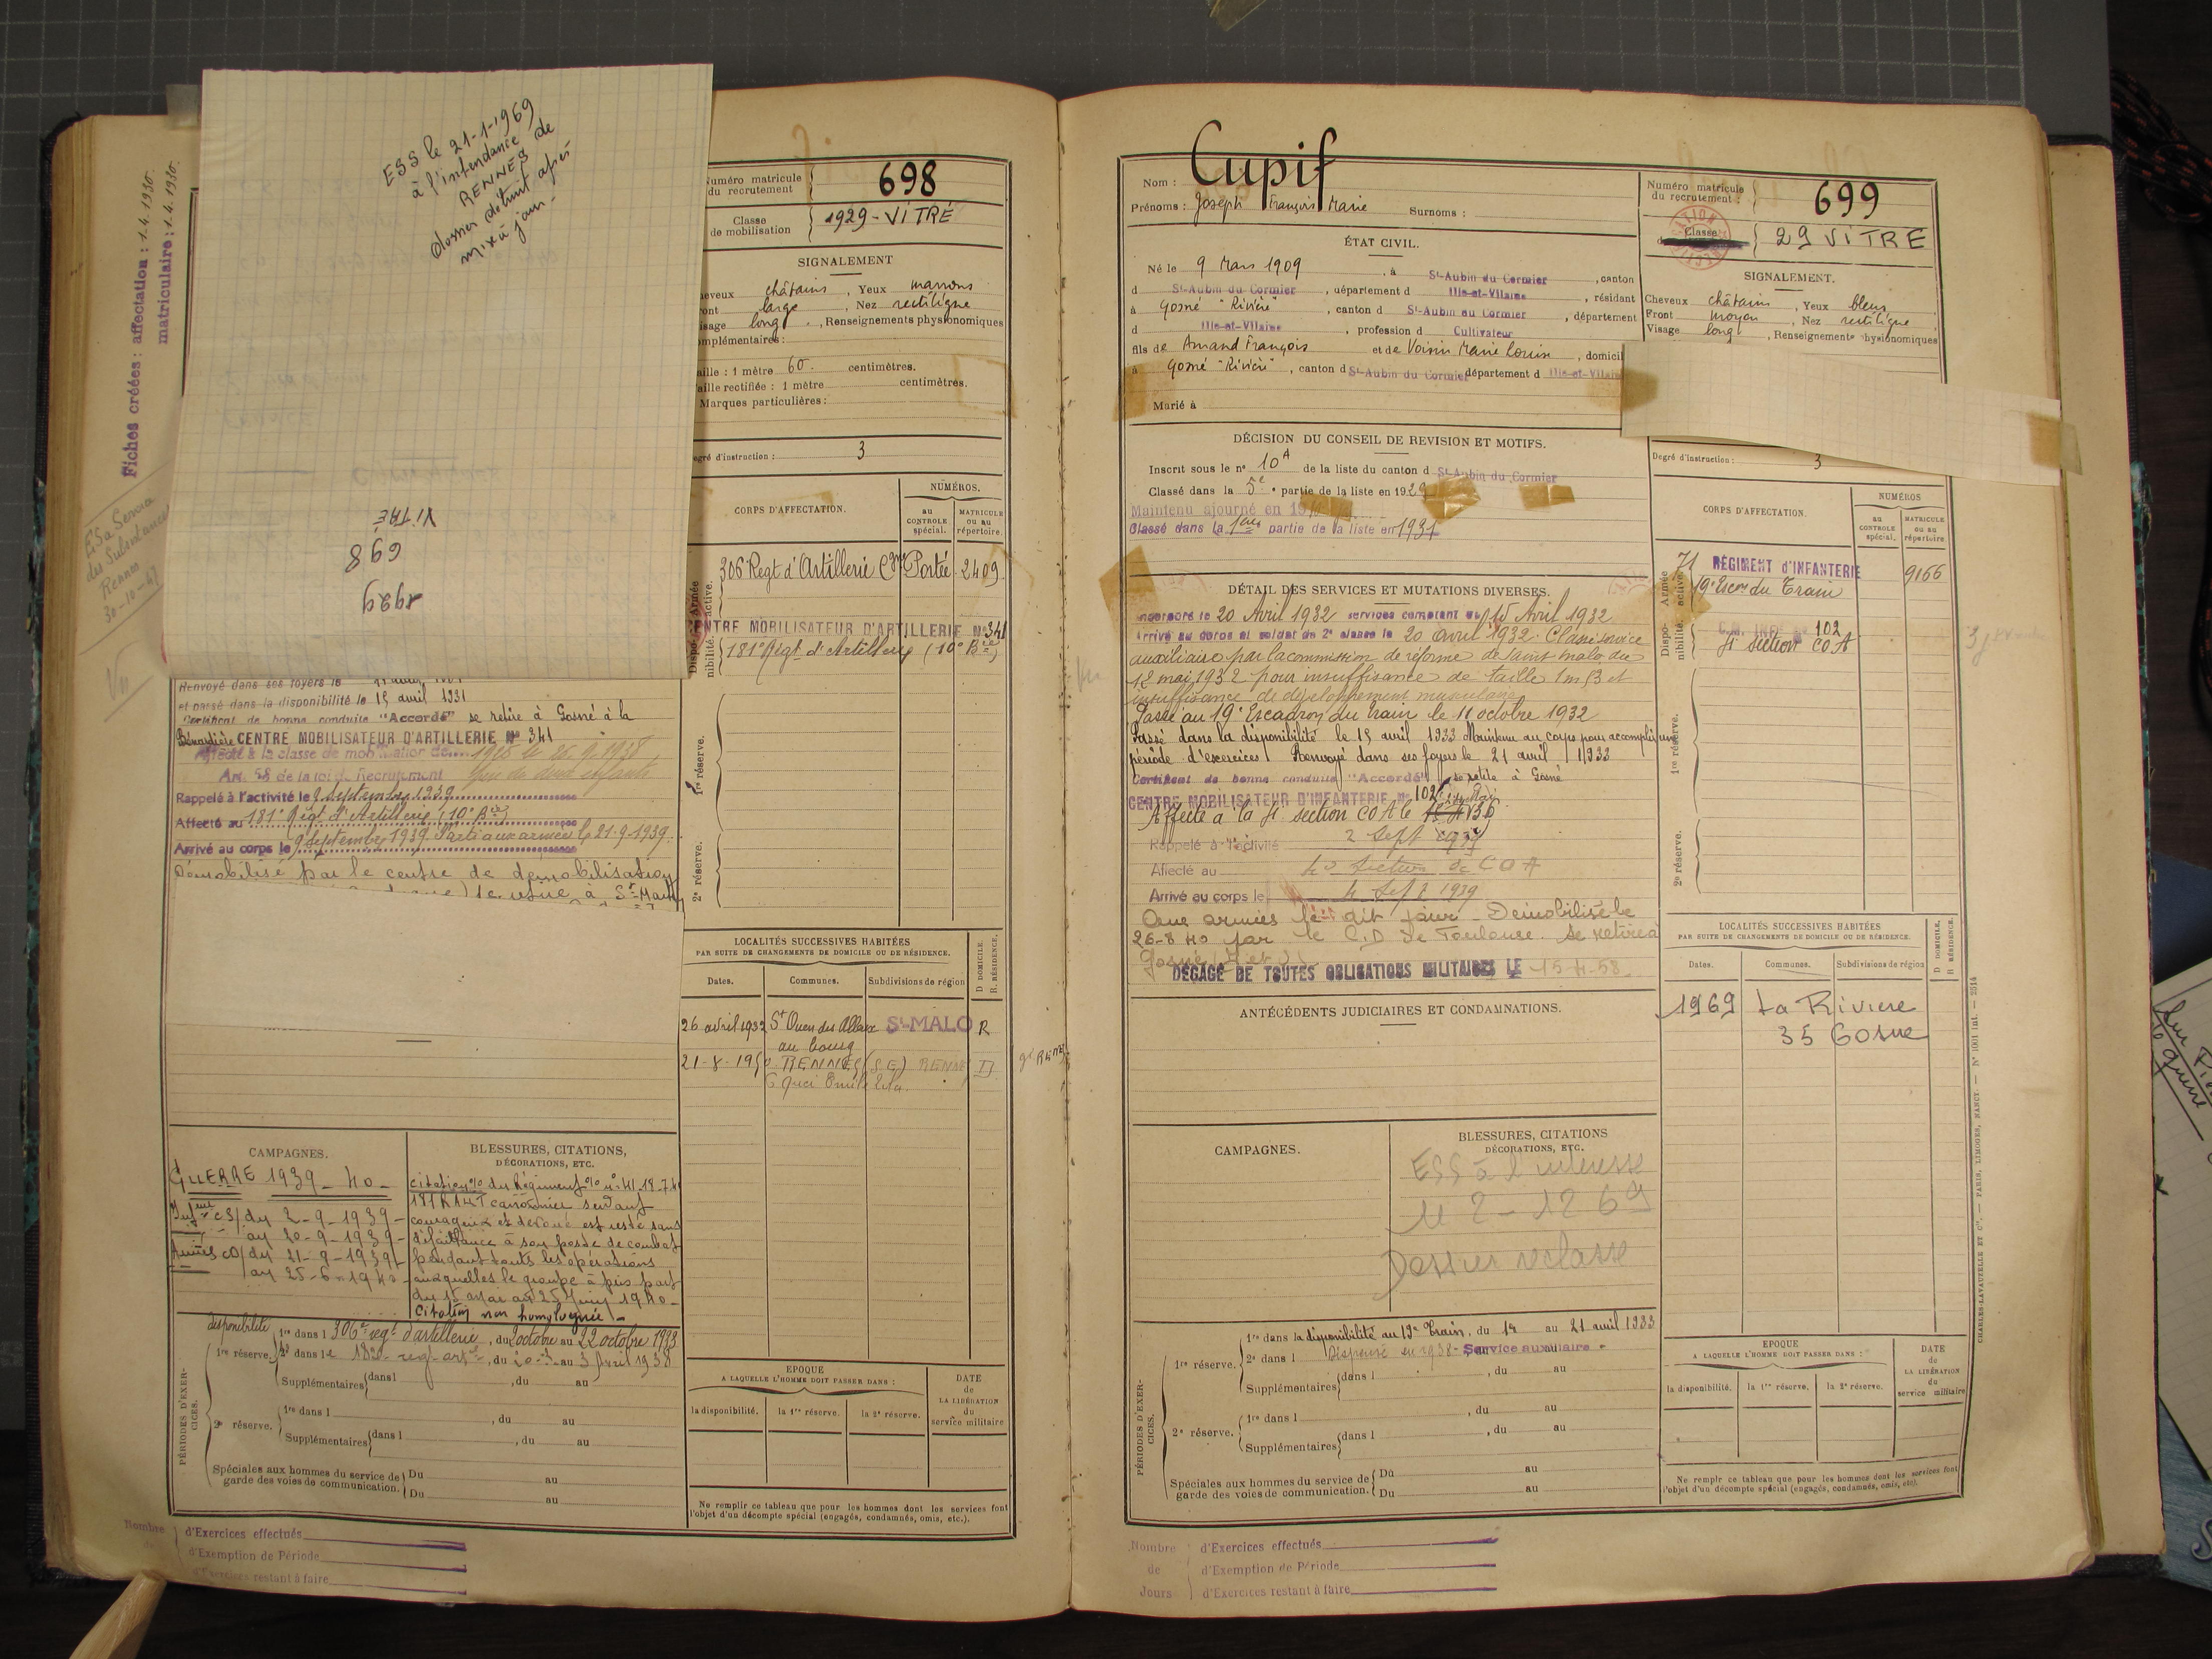 Fiches créées : affectation : 1.4.1930.
matriculaire : 1.4.1930.
ESS le 21-1-1969
à l'intendance de
RENNES
dossier détruit après
mix à jour -
VITRÉ
698
1929
ESa Serma
des Subsistances
Rennes
30-10-47
Numéro matricule
du recrutement
698
Classe
de mobilisation
1929 - VITRÉ
SIGNALEMENT
heveux châtains, Yeux marrons
ront large, Nez rectiligne
isage long, Renseignements physionomiques
omplémentaires :
aille : 1 mètre 60 centimètres.
aille rectifiée : 1 mètre centimètres.
Marques particulières :
egré d'instruction : 3
CORPS D'AFFECTATION.
NUMÉROS.
au
CONTROLE
spécial.
MATRICULE
ou au
répertoire.
Armée
active.
306 Regt d'Artillerie Portée 2409
Dispo-
nibilité.
ENTRE MOBILISATEUR D'ARTILLERIE No 341
181e Régt d'Artillerie (10e Bie)
1re réserve.
2e réserve.
Renvoyé dans ses foyers le
et passé dans la disponibilité le 15 avril 1931
Certificat de bonne conduite "Accordé" se retire à Gosné à la
CENTRE MOBILISATEUR D'ARTILLERIE No 341
Affecté à la classe de mobilisation de le 26.9.1938
Art. 58 de la loi de Recrutement père de deux enfants
Rappelé à l'activité le 2 Septembre 1939
Affecté au 181e Régt d'Artillerie (10e Bie)
Arrivé au corps le 9 Septembre 1939 Parti aux armées le 21-9-1939
Démobilisé par le centre de démobilisation
se retire à St-
LOCALITÉS SUCCESSIVES HABITÉES
PAR SUITE DE CHANGEMENTS DE DOMICILE OU DE RÉSIDENCE.
Dates.
Communes.
Subdivisions de région
D DOMICILE.
R. RÉSIDENCE.
26 avril 1932 St Ouen des Alleux St-MALO R
au bourg
21-8-195 RENNES (SE) RENNE D
6 quai Emile Zola.
CAMPAGNES.
GUERRE 1939-40-
du 2-9-1939-
au 20-9-1939-
Armées CD/du 21-9-1939
au 25-6-1940-
BLESSURES, CITATIONS,
DÉCORATIONS, ETC.
Citation % du Régiment % no 41.18.7.40
181 RALT canonnier servant
courageux et dévoué est resté sans
défaillance à son poste de combat
pendant touts les opérations
auxquelles le groupe à pris part
du 15 mai au 25 juin 1940-
Citation non homologuée -
PÉRIODES D'EXER-
CICES.
disponibilité
1re réserve.
1re dans l 306e regt d'artillerie, du 2 octobre au 22 octobre 1933
2e dans l, du au 3 Avril 1938
Supplémentaires dans l, du au
2e réserve.
1re dans l, du au
Supplémentaires dans l, du au
Spéciales aux hommes du service de
garde des voies de communication.
Du au
Du au
EPOQUE
A LAQUELLE L'HOMME DOIT PASSER DANS :
la disponibilité.
la 1re réserve.
la 2e réserve.
DATE
de
LA LIBÉRATION
du
service militaire
Ne remplir ce tableau que pour les hommes dont les services font
l'objet d'un décompte spécial (engagés, condamnés, omis, etc.).
Nombre
de
d'Exercices effectués
d'Exemption de Période
d'Exercices restant à faire
Nom : Cupif
Prénoms : Joseph François Marie Surnoms :
Numéro matricule
du recrutement :
699
Classe
29 VITRE
ÉTAT CIVIL.
Né le 9 Mars 1909, à St-Aubin du Cormier, canton
d St-Aubin du Cormier, département d Ille-et-Vilaine, résidant
à Gosné "Rivière", canton d St-Aubin du Cormier, département
d Ille-et-Vilaine, profession d Cultivateur
fils de Amand François et de Voisin Marie Louise, domicil
à Gosné "Rivière", canton d St-Aubin du Cormier département d Ille-et-Vilaine
Marié à
SIGNALEMENT.
Cheveux châtains, Yeux bleus
Front moyen, Nez rectiligne
Visage long, Renseignements physionomiques
Degré d'instruction : 3
DÉCISION DU CONSEIL DE REVISION ET MOTIFS.
Inscrit sous le no 10A de la liste du canton d St-Aubin du Cormier
Classé dans la 5e partie de la liste en 1929
Maintenu ajourné en 19
Classé dans la 1ère partie de la liste en 1931
DÉTAIL DES SERVICES ET MUTATIONS DIVERSES.
Incorporé le 20 Avril 1932 services comptant du 15 Avril 1932
Arrivé au corps et soldat de 2e classe le 20 avril 1932. Classé service
auxiliaire par la commission de réforme de Saint Malo du
12 mai 1932 pour insuffisance de taille 1m53 et
insuffisance de développement musculaire
Passé au 19e Escadron du Train le 11 octobre 1932
Passé dans la disponibilité le 15 avril 1933 Maintenu au corps pour accomplir une
période d'exercices Renvoyé dans ses foyers le 21 avril 1933
Certificat de bonne conduite "Accordé" se retire à Gosné
CENTRE MOBILISATEUR D'INFANTERIE No 102
Affecté à la 4e section COA le
Rappelé à l'activité 2 Sept 1939
Affecté au 4e Section de COA
Arrivé au corps le 4 Sept 1939
Aux armées le dit jour - Démobilisé le
26-8-40 par le C.D de Toulouse. se retire à
Gosné
DÉGAGÉ DE TOUTES OBLIGATIONS MILITAIRES LE 15-4-58
CORPS D'AFFECTATION.
NUMÉROS
au
CONTROLE
spécial.
MATRICULE
ou au
répertoire.
Armée
active.
71 RÉGIMENT d'INFANTERIE 9166
19e Escon du Train
Dispo-
nibilité.
102
4e section COA
1re réserve.
2e réserve.
ANTÉCÉDENTS JUDICIAIRES ET CONDAMNATIONS.
LOCALITÉS SUCCESSIVES HABITÉES
PAR SUITE DE CHANGEMENTS DE DOMICILE OU DE RÉSIDENCE.
Dates.
Communes.
Subdivisions de région
D DOMICILE.
R RÉSIDENCE.
1969 La Riviere
35 Gosne
CAMPAGNES.
BLESSURES, CITATIONS
DÉCORATIONS, ETC.
ESS à l'interessé
le 2-12 69
Dossier reclassé
PÉRIODES D'EXER-
CICES.
1re réserve.
1re dans la disponibilité au 19e Train, du 14 au 21 avril 1933
2e dans l Dispensé en 1938 - Service auxiliaire -
Supplémentaires dans l, du au
2e réserve.
1re dans l, du au
Supplémentaires dans l, du au
Spéciales aux hommes du service de
garde des voies de communication.
Du au
Du au
EPOQUE
A LAQUELLE L'HOMME DOIT PASSER DANS :
la disponibilité.
la 1re réserve.
la 2e réserve.
DATE
de
LA LIBÉRATION
du
service militaire
Ne remplir ce tableau que pour les hommes dont les services font
l'objet d'un décompte spécial (engagés, condamnés, omis, etc).
CHARLES-LAVAUZELLE ET Cie. — PARIS, LIMOGES, NANCY. — No 1001 Int. — 2514
Nombre
de
Jours
d'Exercices effectués
d'Exemption de Période
d'Exercices restant à faire